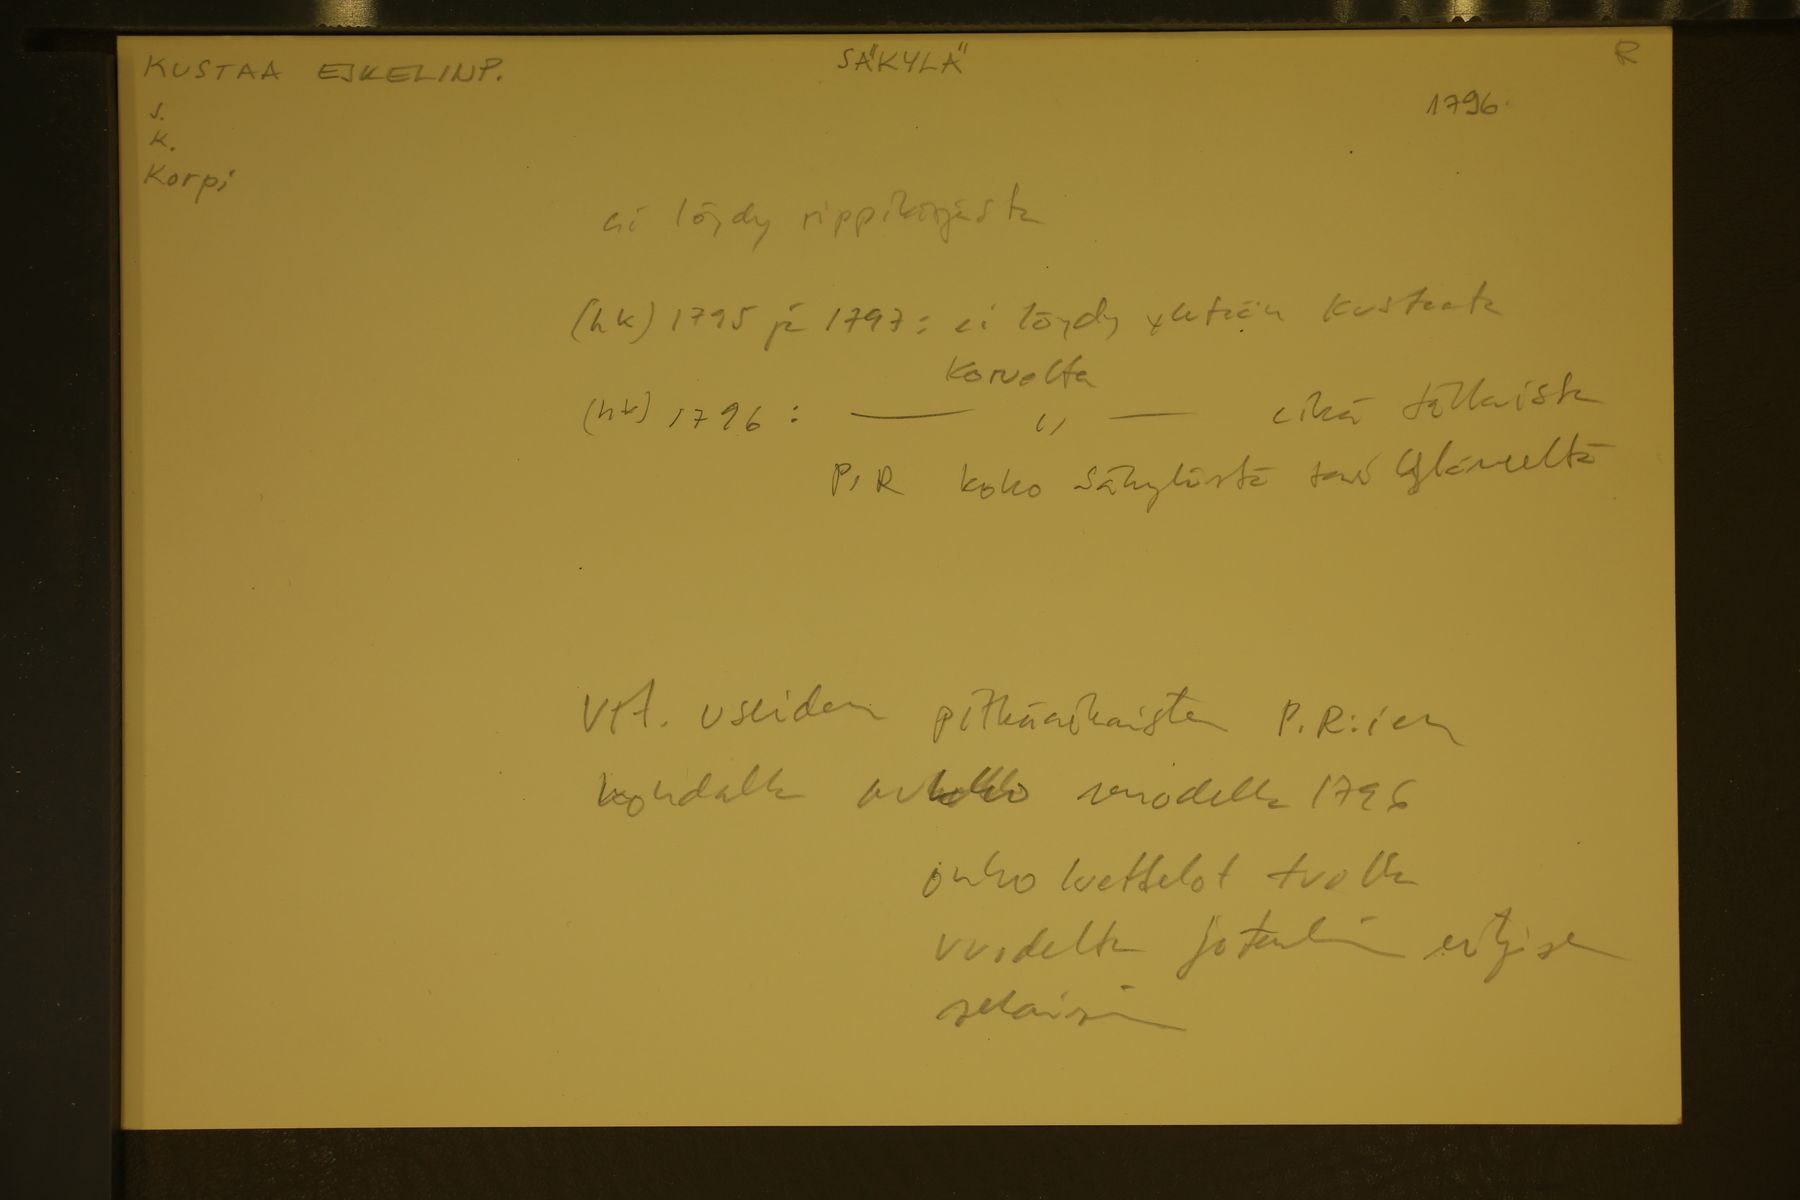 KUSTAA ESKELINP. SÄKYLÄ R
1796
s.
k.
Korpi
ei löydy rippikirjasta
(hk) 1795 ja 1797: ei löydy yhtään Kustaata
Korvolta
(hk) 1796: — „ — eikä tällaista
P.R koko Säkylästä tai Yläneeltä
Vrt. useiden pitkäaikaisten P.R:ien
kohdalla aukko vuodella 1796
onko luettelot tuolla
vuodelta jotenkin erityisen
sekaisin